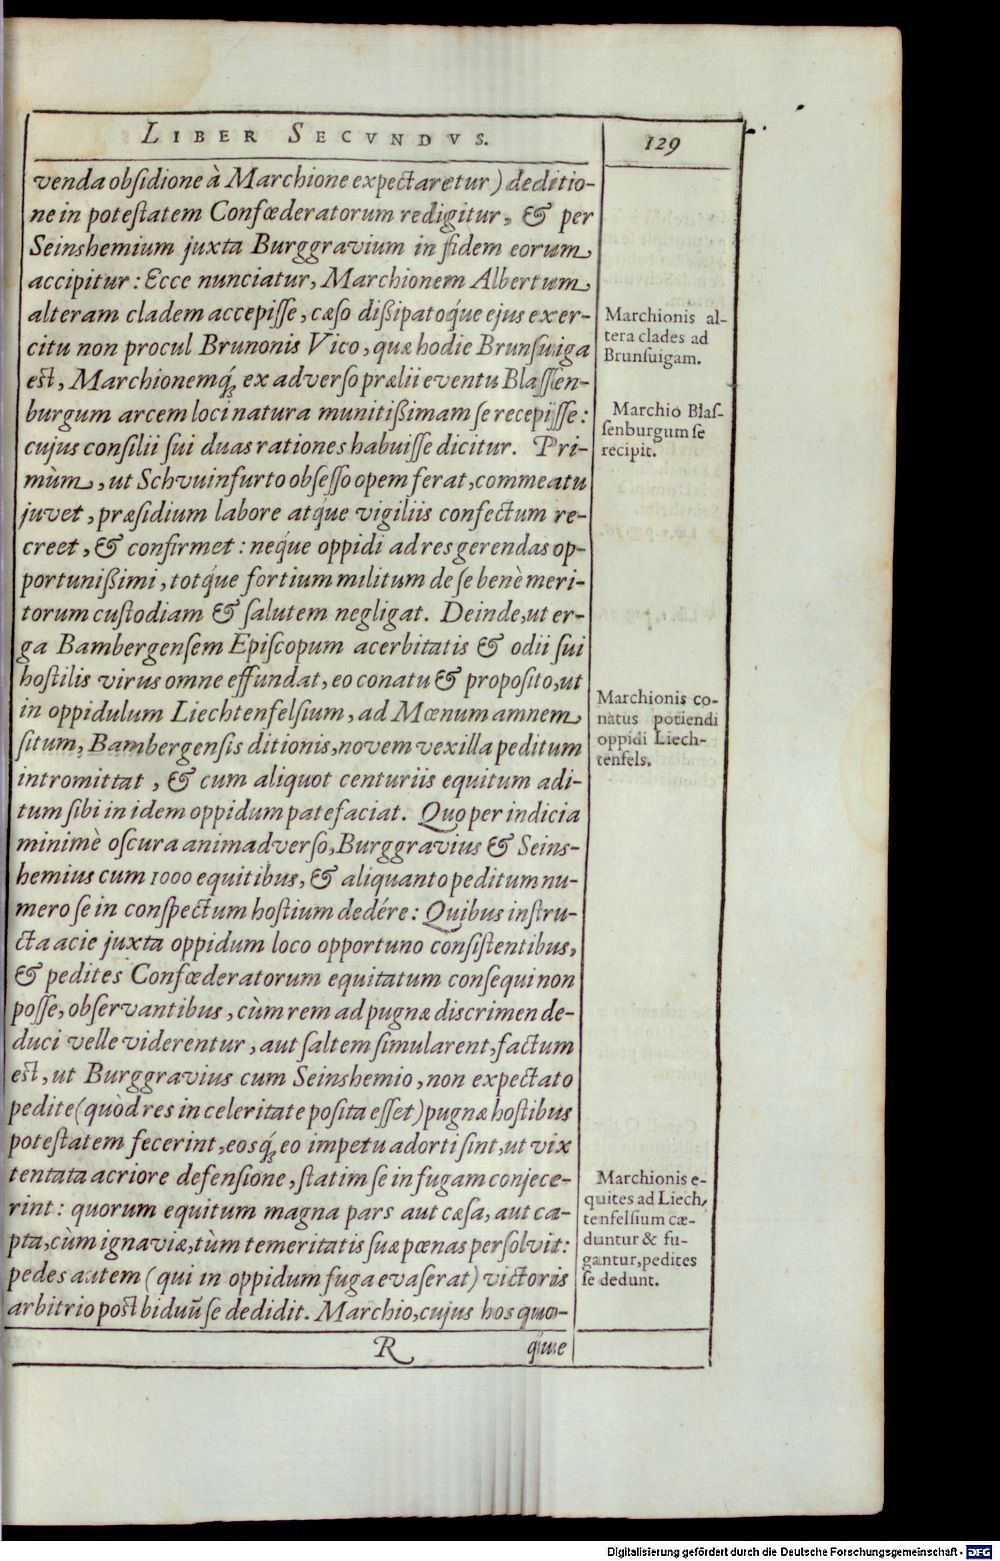 LIBER SECVNDVS.
129
venda obsidione à Marchione expectaretur) deditio-
ne in potestatem Confœderatorum redigitur, & per
Seinshemium juxta Burggravium in fidem eorum
accipitur: Ecce nunciatur, Marchionem Albertum
alteram cladem accepisse, cæso dißipatoq́ue ejus exer-
citu non procul Brunonis Vico, quæ hodie Brunsuiga
est, Marchionemq́; ex adverso prælii eventu Blassen-
burgum arcem loci natura munitißimam se recepisse:
cujus consilii sui duas rationes habuisse dicitur. Pri-
mùm, ut Schvuinfurto obsesso opem ferat, commeatu
juvet, præsidium labore atq́ue vigiliis confectum re-
creet, & confirmet: neq́ue oppidi ad res gerendas op-
portunißimi, totq́ue fortium militum de se benè meri-
torum custodiam & salutem negligat. Deinde, ut er-
ga Bambergensem Episcopum acerbitatis & odii sui
hostilis virus omne effundat, eo conatu & proposito, ut
in oppidulum Liechtenfelsium, ad Mœnum amnem
situm, Bambergensis ditionis, novem vexilla peditum
intromittat, & cum aliquot centuriis equitum adi-
tum sibi in idem oppidum patefaciat. Quo per indicia
minimè oscura animadverso, Burggravius & Seins-
hemius cum 1000 equitibus, & aliquanto peditum nu-
mero se in conspectum hostium dedére: Quibus instru-
cta acie juxta oppidum loco opportuno consistentibus,
& pedites Confœderatorum equitatum consequi non
posse, observantibus, cùm rem ad pugnæ discrimen de-
duci velle viderentur, aut saltem simularent, factum
est, ut Burggravius cum Seinshemio, non expectato
pedite (quòd res in celeritate posita esset) pugnæ hostibus
potestatem fecerint, eosq́; eo impetu adorti sint, ut vix
tentata acriore defensione, statim se in fugam conjece-
rint: quorum equitum magna pars aut cæsa, aut ca-
pta, cùm ignaviæ, tùm temeritatis suæ pœnas persolvit:
pedes autem (qui in oppidum fuga evaserat) victoris
arbitrio post biduū se dedidit. Marchio, cujus hos quo-
R
q́ue
Marchionis al-
tera clades ad
Brunsuigam.
Marchio Blas-
senburgum se
recipit.
Marchionis co-
natus potiendi
oppidi Liech-
tenfels.
Marchionis e-
quites ad Liech,
tenfelsium cæ-
duntur & fu-
gantur, pedites
se dedunt.
Digitalisierung gefördert durch die Deutsche Forschungsgemeinschaft - DFG